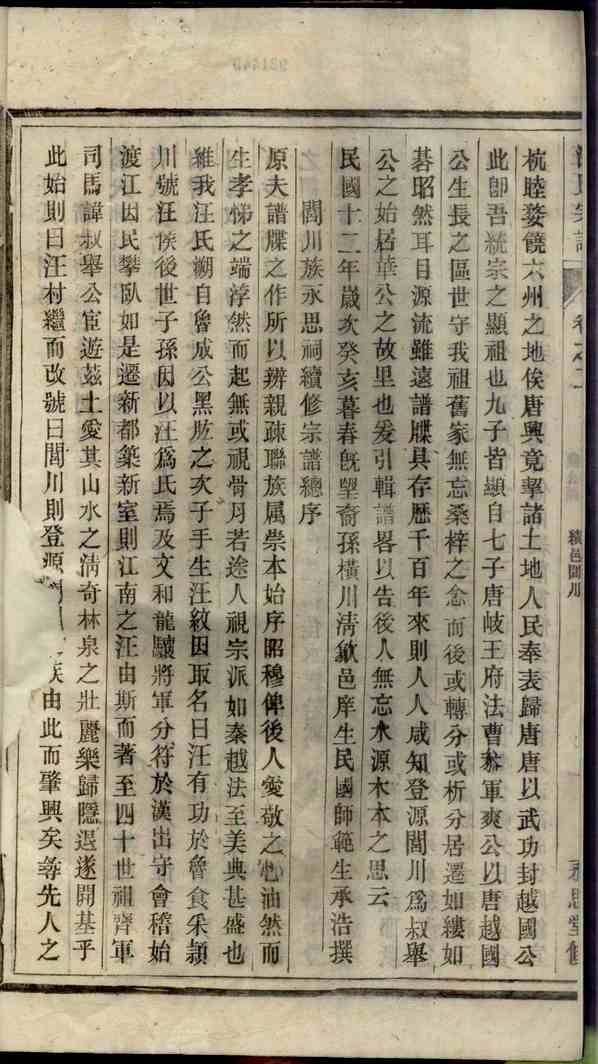 杭睦婺饒六州之地俟唐興竟挈諸土地人民奉表歸唐唐以武功封越國公
此卽吾統宗之顯祖也九子皆顯自七子唐岐王府法曹叅軍爽公以唐越國
公生長之區世守我祖舊家無忘桑梓之念而後或轉分或析分居遷如縷如
碁昭然耳目源流雖遠譜牒具存歷千百年來則人人咸知登源閬川爲叔舉
公之始居華公之故里也爰引輯譜畧以告後人無忘水源木本之思云
民國十二年歲次癸亥暮春旣望裔孫橫川清歙邑庠生民國師範生承浩撰
閬川族永思祠續修宗譜總序
原夫譜牒之作所以辨親疎聯族属崇本始序昭穆俾後人愛敬之心油然而
生孝悌之端淳然而起無或視骨月若途人視宗派如秦越法至美典甚盛也
維我汪氏溯自魯成公黑肱之次子手生汪紋因取名曰汪有功於魯食采潁
川號汪侯後世子孫因以汪爲氏焉及文和龍驤將軍分符於漢出守會稽始
渡江因民攀臥如是遷新都築新室則江南之汪由斯而著至四十世祖齊軍
司馬諱叔舉公宦遊茲土愛其山水之清奇林泉之壯麗樂歸隱退遂開基乎
此始則曰汪村繼而改號曰閬川則登源族由此而肇興矣蓋先人之
卷之
績邑閬川
永思堂修